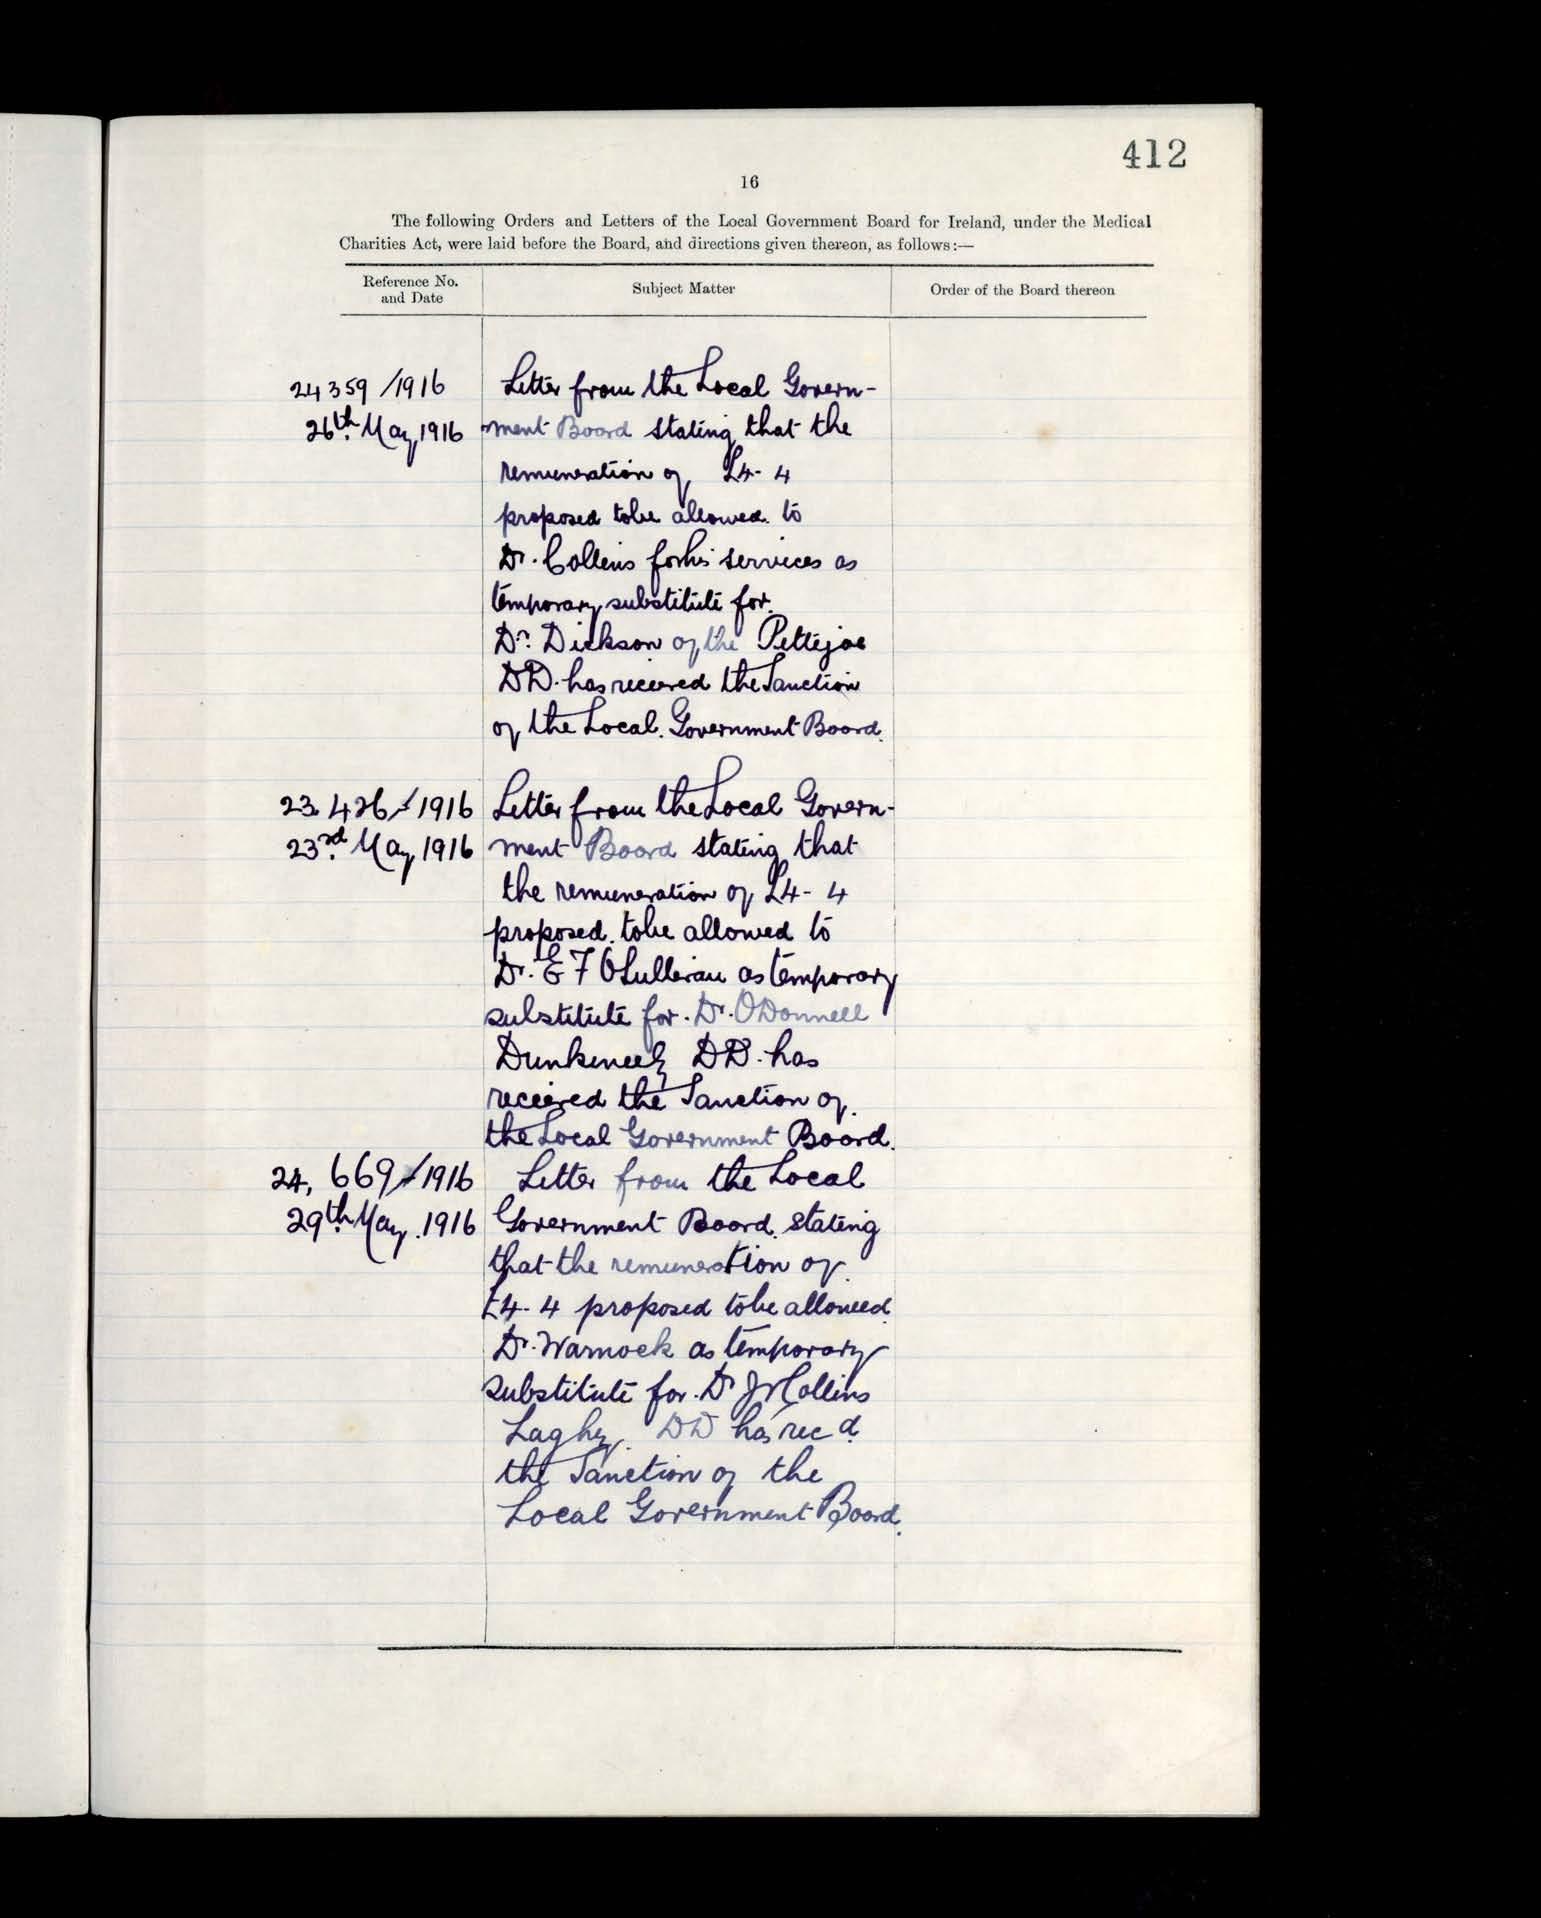 412
16
The following Orders and Letters of the Local Government Board for Ireland, under the Medical
Charities Act, were laid before the Board, and directions given thereon, as follows:—
Reference No.
and Date
Subject Matter
Order of the Board thereon
24359/1916 Letter from the Local Govern-
26th May, 1916 ment Board stating that the
remuneration of £4-4
proposed to be allowed to
Dr. Collins for his services as
temporary substitute for.
Dr. Dickson of the Pettigoe
DD. has received the Sanction
of the Local. Government Board.
23.426/1916 Letter from the Local Govern-
23rd May, 1916 ment Board stating that
the remuneration of £4-4
proposed. to be allowed to
Dr. E F O'Sullivan as temporary
substitute for. Dr. O'Donnell
Dunkineely DD. has
received the Sanction of.
the Local Government Board.
24,669/1916 Letter from the Local
29th May. 1916 Government Board. stating
that the remuneration of.
£4-4 proposed to be allowed
Dr. Warnock as temporary
substitute for. Dr Collins
Laghy. DD has rec d.
the Sanction of the
Local Government Board.